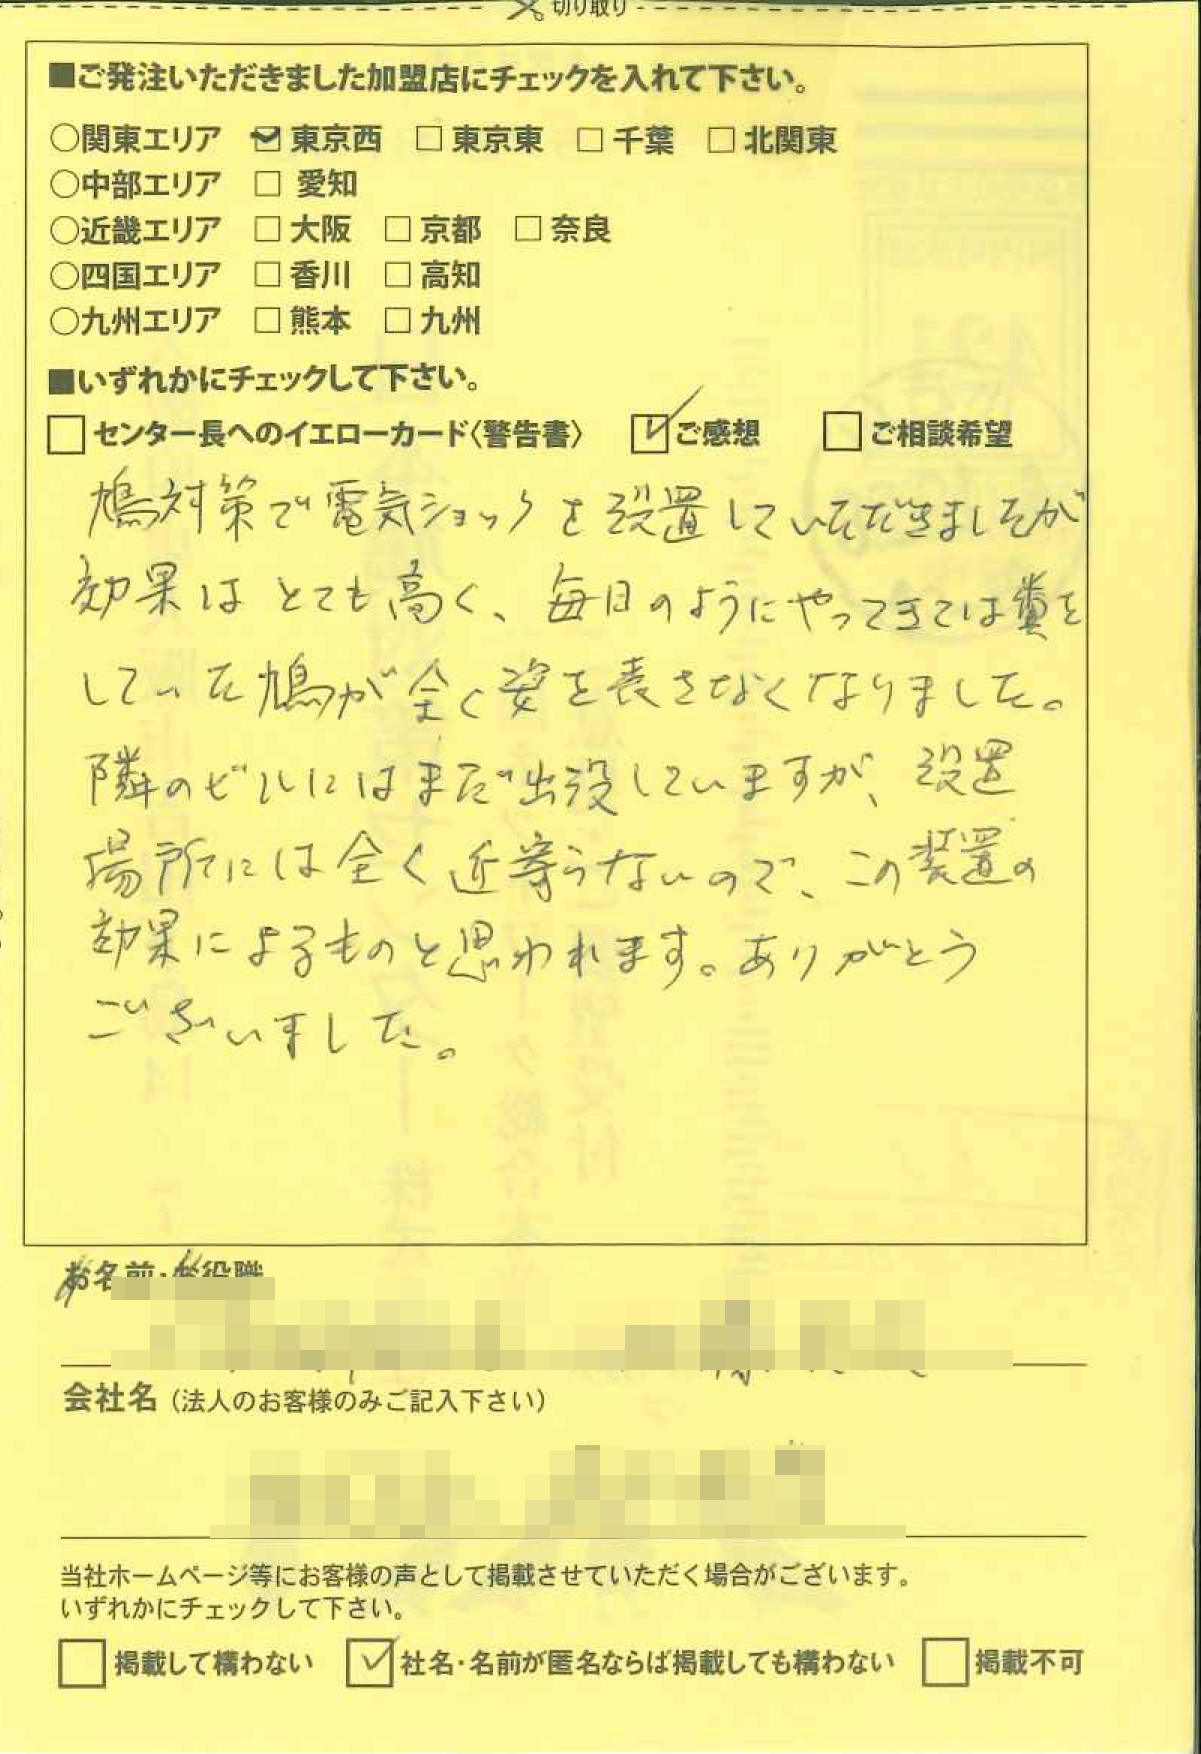 切り取り
■ご発注いただきました加盟店にチェックを入れて下さい。
○関東エリア ☑ 東京西 □ 東京東 □ 千葉 □ 北関東
○中部エリア □ 愛知
○近畿エリア □ 大阪 □ 京都 □ 奈良
○四国エリア □ 香川 □ 高知
○九州エリア □ 熊本 □ 九州
■いずれかにチェックして下さい。
□ センター長へのイエローカード〈警告書〉 ☑ ご感想 □ ご相談希望
鳩対策で電気ショックを設置していただきましたが
効果はとても高く、毎日のようにやってきては糞を
していた鳩が全く姿を表さなくなりました。
隣のビルにはまだ出没していますが、設置
場所には全く近寄らないので、この装置の
効果によるものと思われます。ありがとう
ございました。
お名前・お役職
会社名（法人のお客様のみご記入下さい）
当社ホームページ等にお客様の声として掲載させていただく場合がございます。
いずれかにチェックして下さい。
□ 掲載して構わない ☑ 社名・名前が匿名ならば掲載しても構わない □ 掲載不可